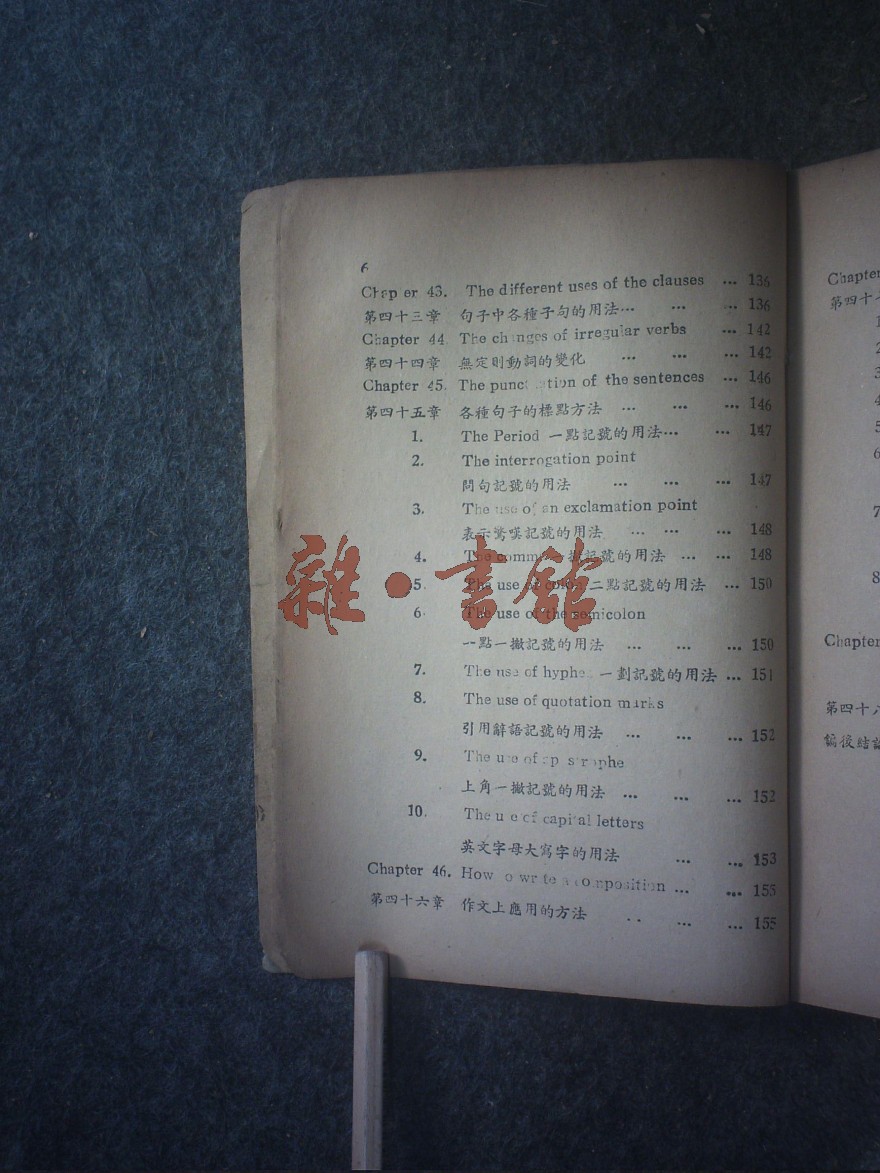 6
Chapter 43. The different uses of the clauses ... 136
第四十三章 句子中各種子句的用法... ... ... 136
Chapter 44. The changes of irregular verbs ... 142
第四十四章 無定則動詞的變化 ... ... ... 142
Chapter 45. The punctuation of the sentences ... 146
第四十五章 各種句子的標點方法 ... ... ... 146
1. The Period 一點記號的用法... ... ... 147
2. The interrogation point
問句記號的用法 ... ... ... 147
3. The use of an exclamation point
表示驚嘆記號的用法 ... ... ... 148
4. The comma 一撇記號的用法 ... ... 148
5. The use of colon 二點記號的用法 ... 150
6. The use of the semicolon
一點一撇記號的用法 ... ... ... 150
7. The use of hyphen 一劃記號的用法 ... 151
8. The use of quotation marks
引用辭語記號的用法 ... ... ... 152
9. The use of apostrophe
上角一撇記號的用法 ... ... ... 152
10. The use of capital letters
英文字母大寫字的用法 ... ... 153
Chapter 46. How to write a composition ... ... 155
第四十六章 作文上應用的方法 ... ... ... 155
雜·書館
Chapter
第四十
1
2
3
4
5
6
7
8
Chapter
第四十八
編後結